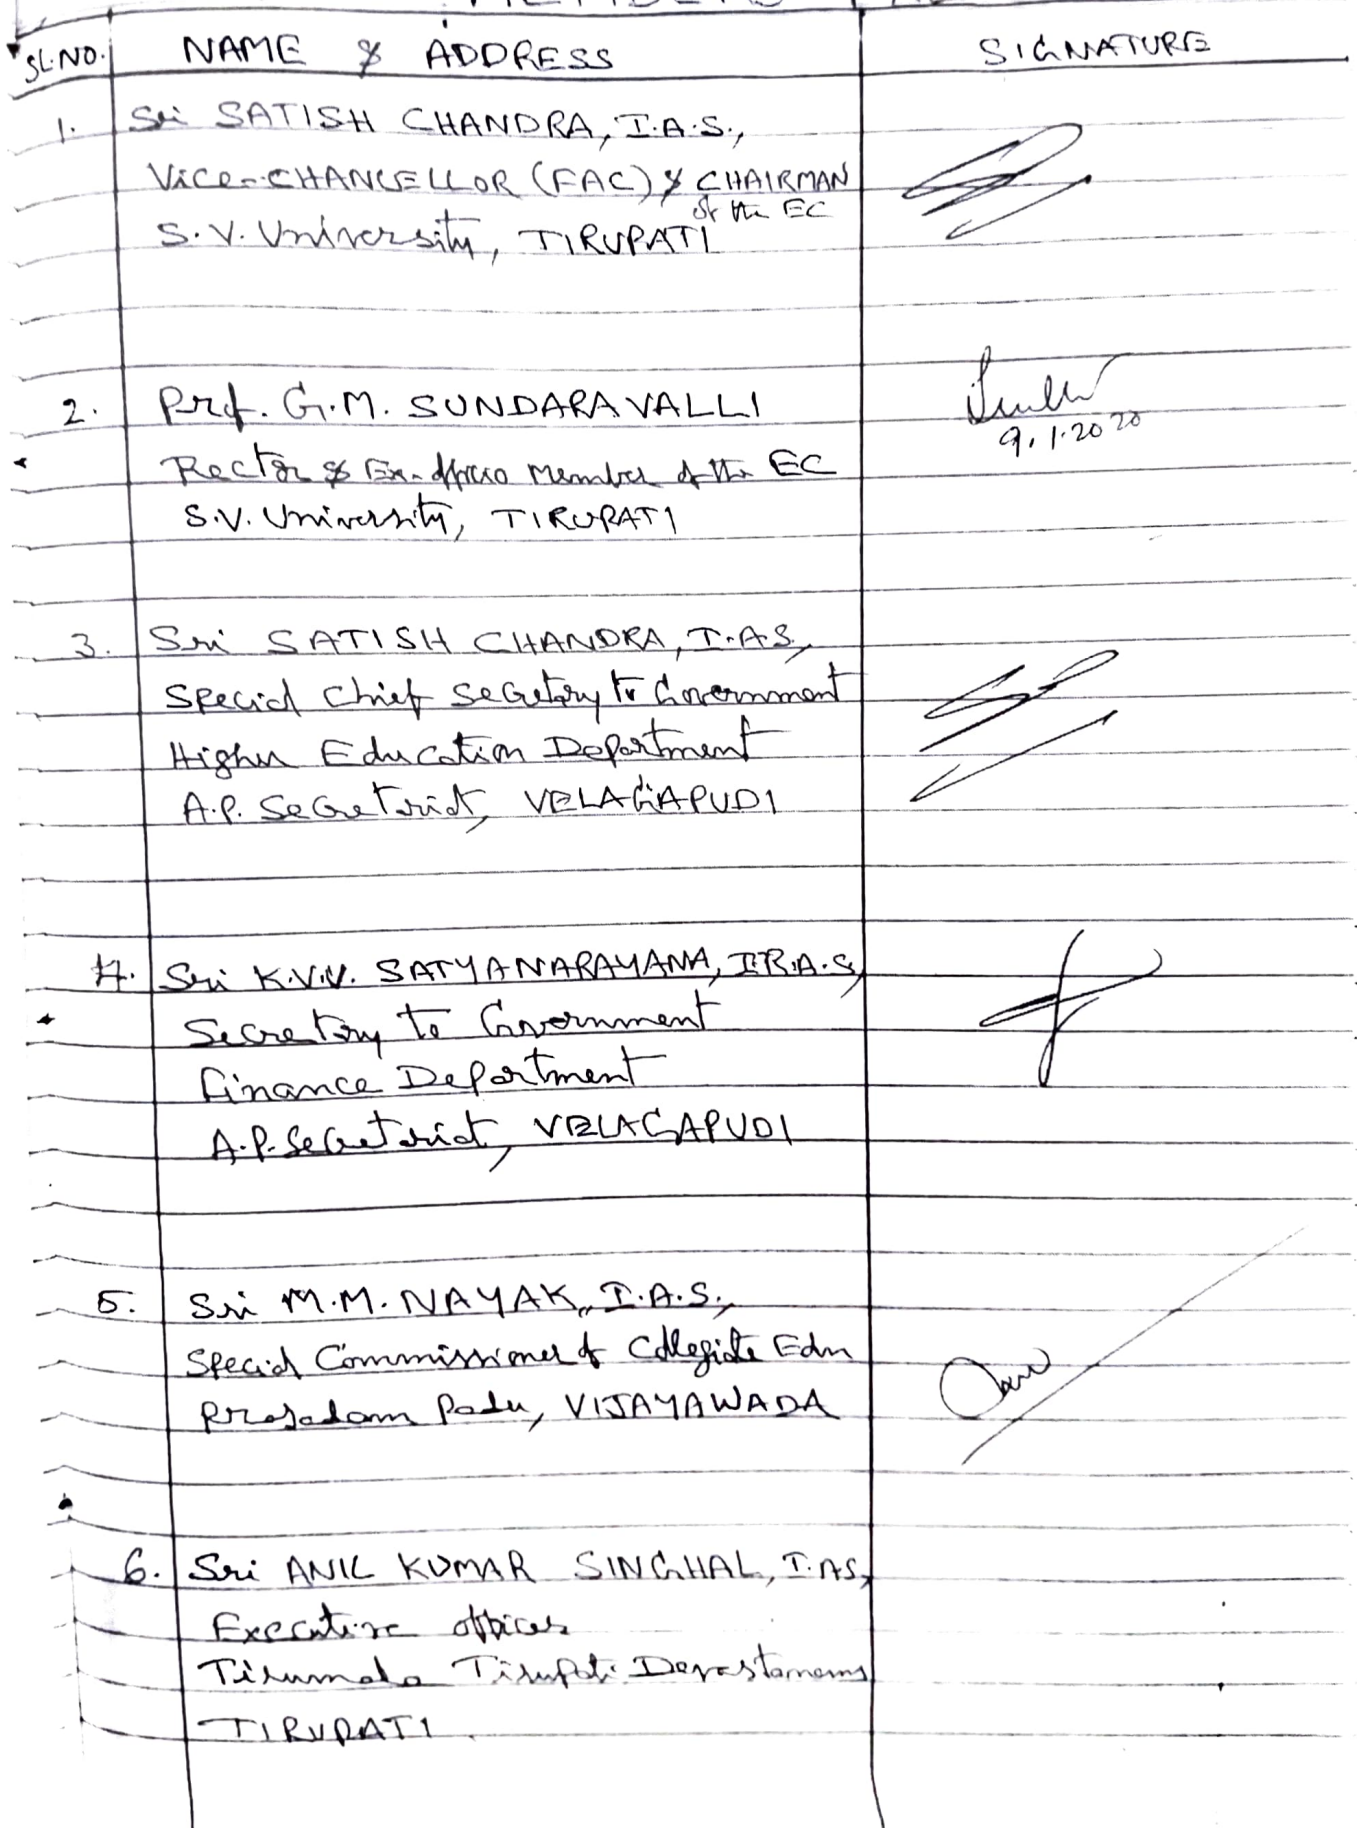 SL.NO. NAME & ADDRESS SIGNATURE
1. Sri SATISH CHANDRA, I.A.S.,
Vice-CHANCELLOR (FAC) & CHAIRMAN
of the EC
S.V. University, TIRUPATI
2. Prof. G.M. SUNDARAVALLI
9.1.2020
Rector & Ex-officio Member of the EC
S.V. University, TIRUPATI
3. Sri SATISH CHANDRA, I.A.S.,
Special Chief Secretary to Government
Higher Education Department
A.P. Secretariat, VELAGAPUDI
4. Sri K.V.V. SATYANARAYANA, I.R.A.S,
Secretary to Government
Finance Department
A.P. Secretariat, VELAGAPUDI
5. Sri M.M. NAYAK, I.A.S.,
Special Commissioner of Collegiate Edn
Prasadam Padu, VIJAYAWADA
6. Sri ANIL KUMAR SINGHAL, I.AS,
Executive officer
Tirumala Tirupati Devastanams
TIRUPATI.